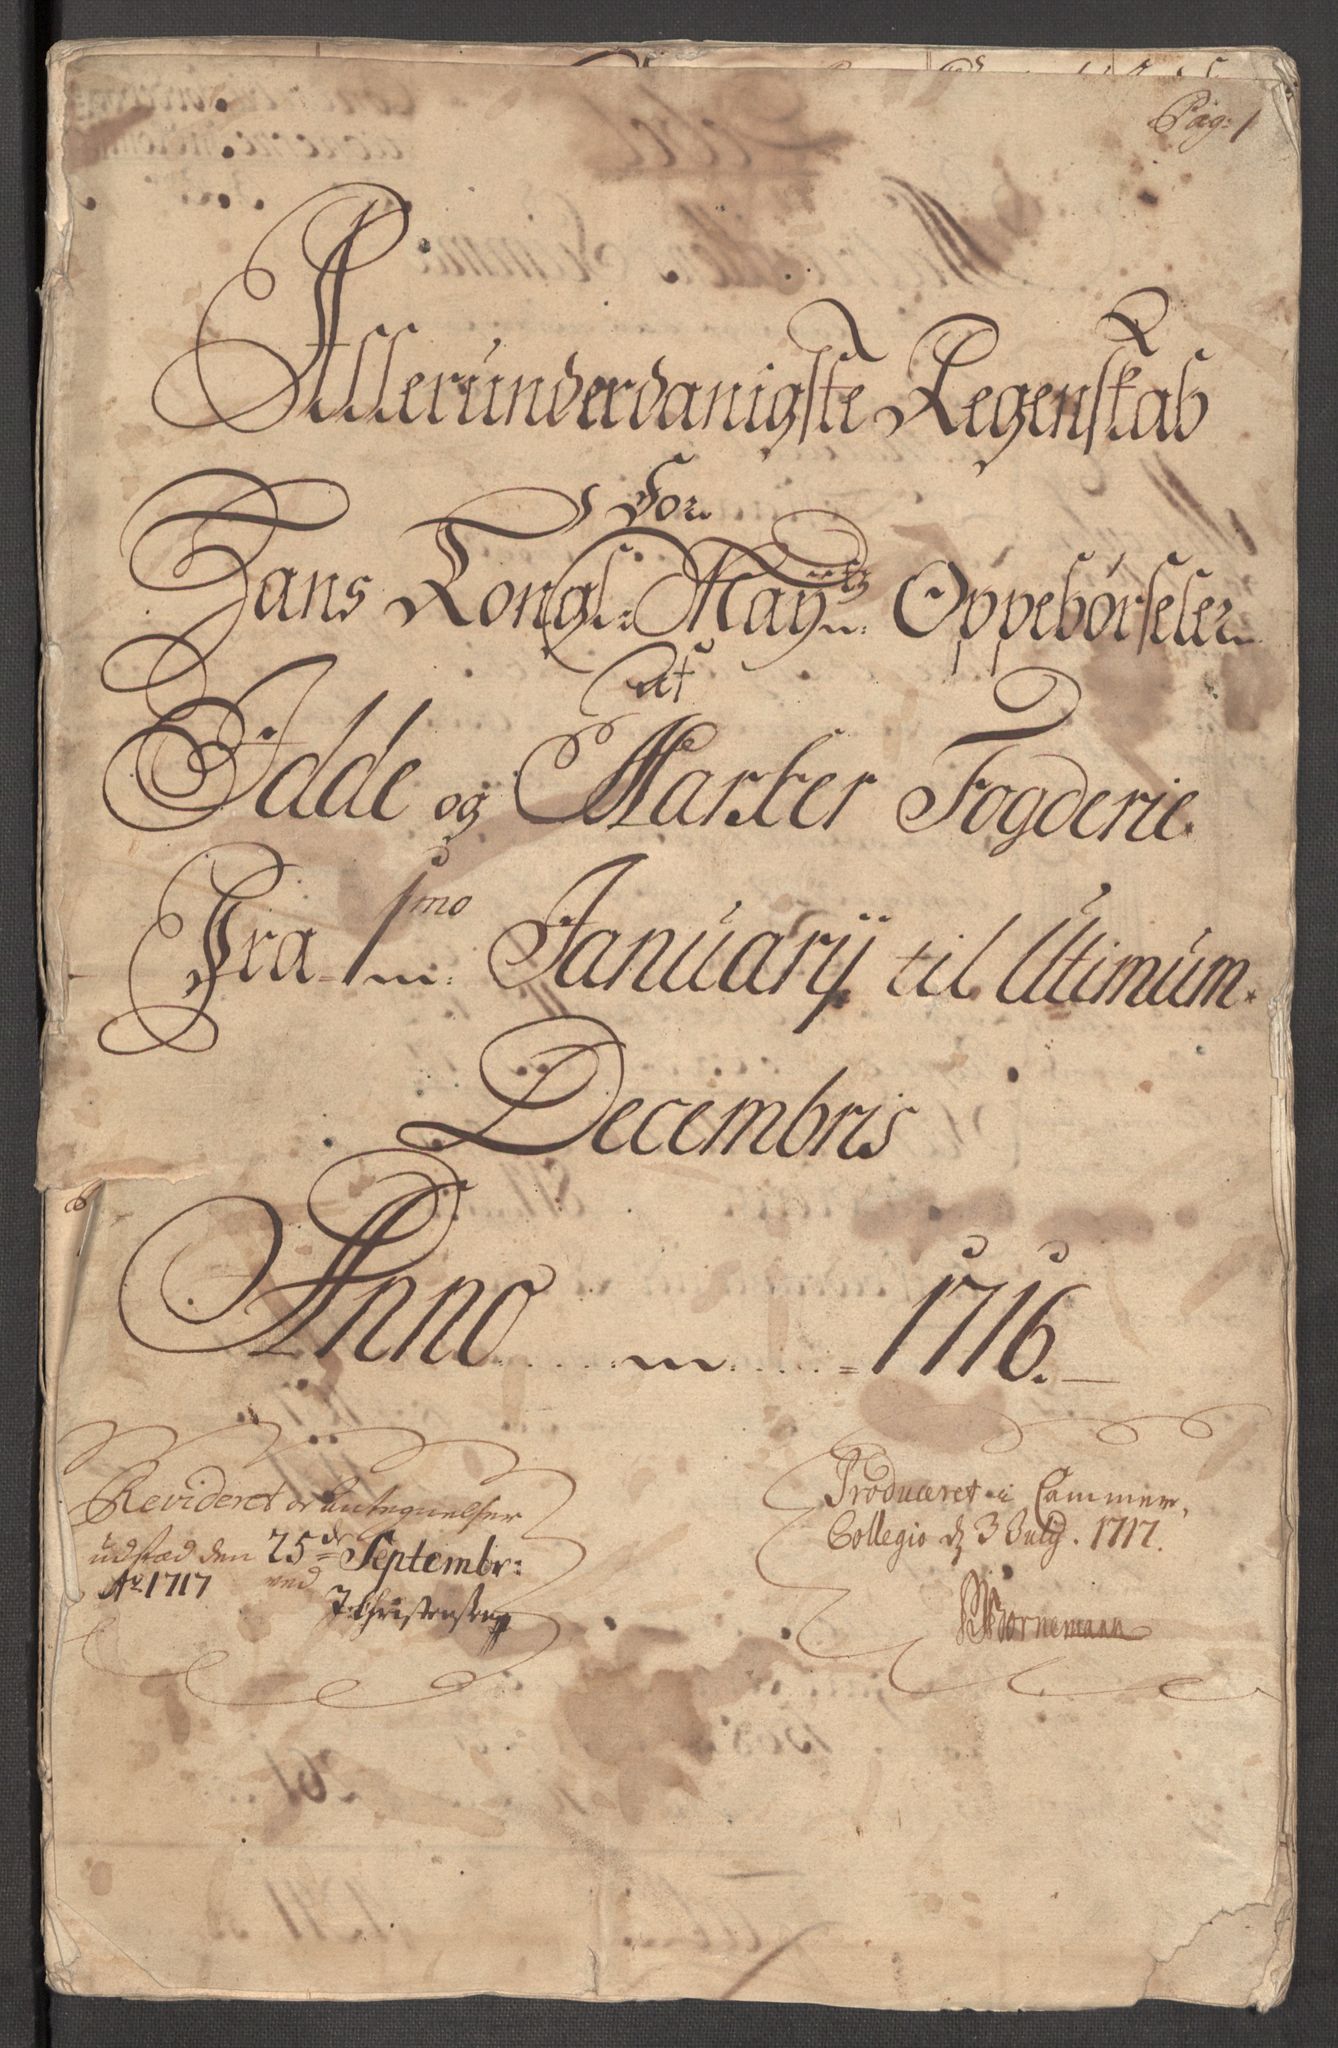 Pag: 1
Alleründerdanigste Regenskab
For
Hans Kongl: Maÿtz Oppebørseler
af
Idde og Marker Fogderie
Fra 1mo Januarÿ til Utimüm
Decembris
Anno 1716.
Revideret or Antegnelser
udstæd den 25de Septembr:
Ao 1717 ved
J: Christensen
Produceret i Cammer
Collegio d 3 July. 1717.
Bornemann